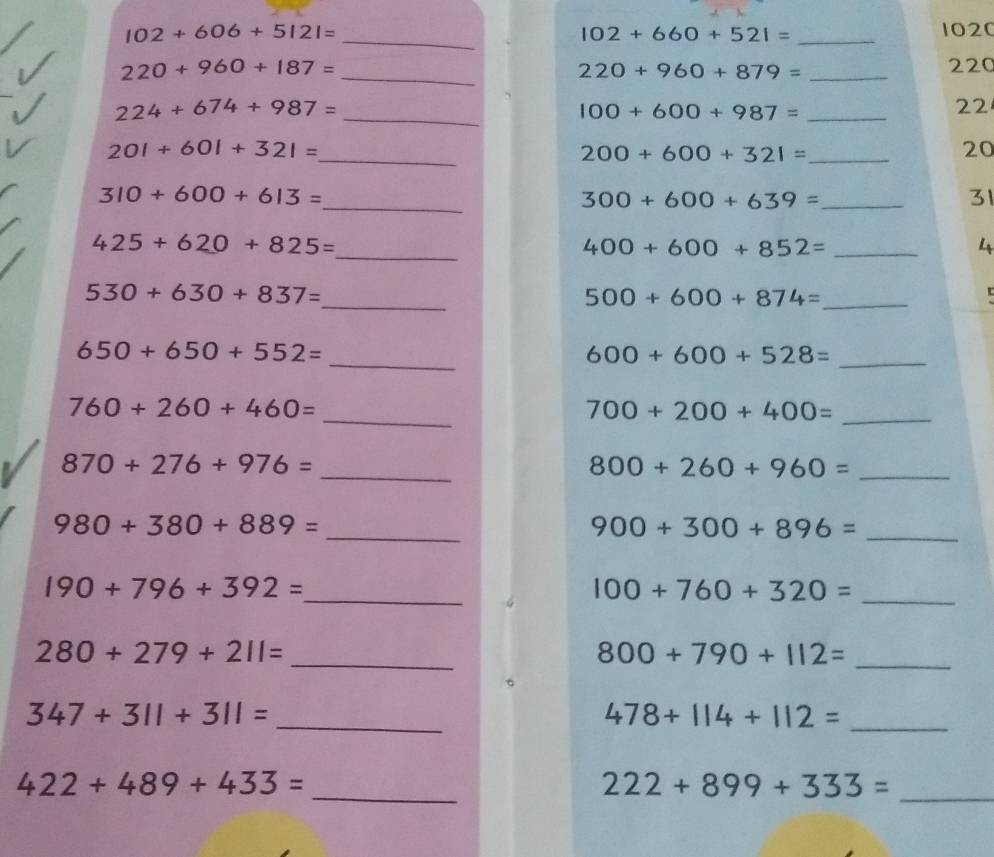 102 + 606 + 5121= ________
220 + 960 + 187 = ________
224 + 674 + 987 = ________
201 + 601 + 321 = ________
310 + 600 + 613 = ________
425 + 620 + 825= ________
530 + 630 + 837= ________
650 + 650 + 552= ________
760 + 260 + 460= ________
870 + 276 + 976 = ________
980 + 380 + 889 = ________
190 + 796 + 392 = ________
280 + 279 + 211= ________
347 + 311 + 311 = ________
422 + 489 + 433 = ________
102 + 660 + 521 = ________
220 + 960 + 879 = ________
100 + 600 + 987 = ________
200 + 600 + 321 = ________
300 + 600 + 639 = ________
400 + 600 + 852= ________
500 + 600 + 874= ________
600 + 600 + 528= ________
700 + 200 + 400= ________
800 + 260 + 960 = ________
900 + 300 + 896 = ________
100 + 760 + 320 = ________
800 + 790 + 112= ________
478+ 114 + 112 = ________
222 + 899 + 333 = ________
102
220
22
20
31
4